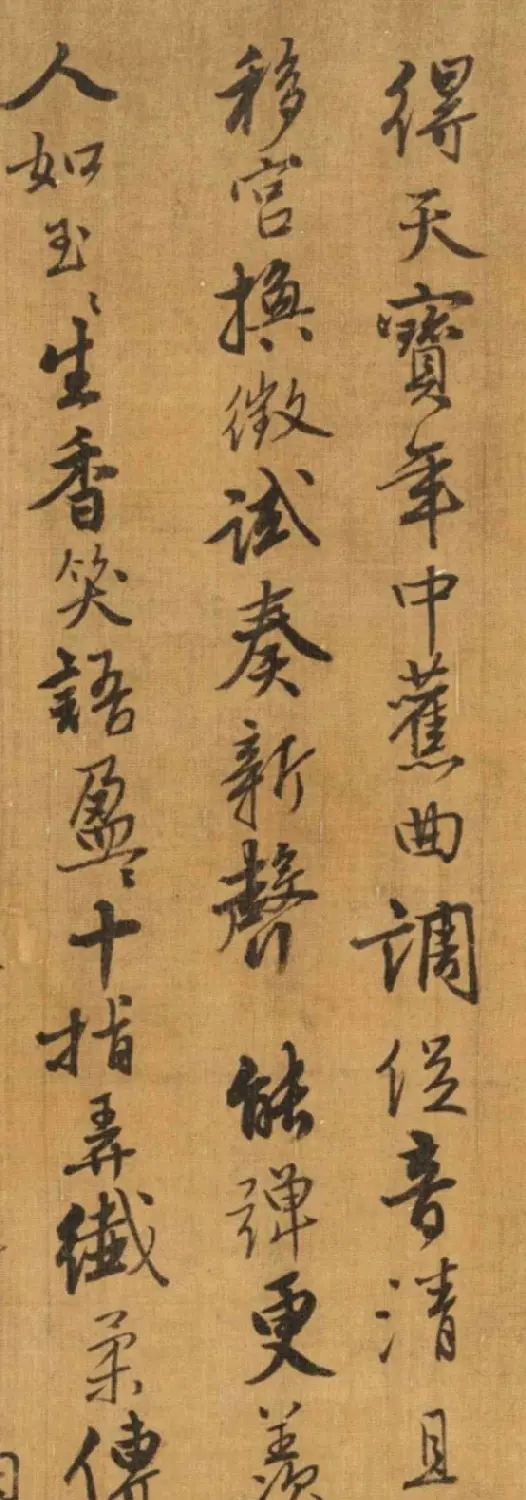 得天寶年中舊曲調從音清且
移宮換徵試奏新聲 能彈更羨
人如玉〻生香笑語盈〻十指弄纖柔傳